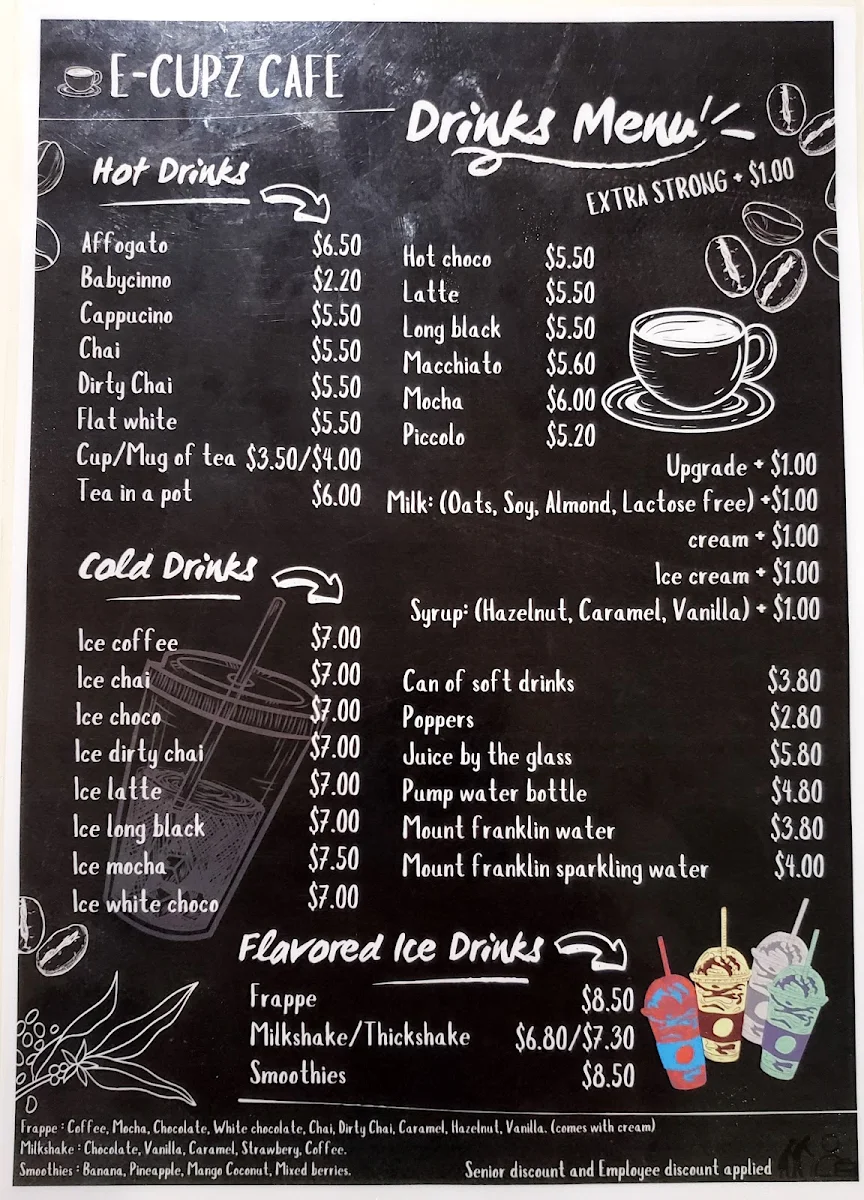 E-CUPZ CAFE
Drinks Menu
EXTRA STRONG + $1.00
Hot Drinks
Affogato $6.50
Babycinno $2.20
Cappucino $5.50
Chai $5.50
Dirty Chai $5.50
Flat white $5.50
Cup/Mug of tea $3.50/$4.00
Tea in a pot $6.00
Hot choco $5.50
Latte $5.50
Long black $5.50
Macchiato $5.60
Mocha $6.00
Piccolo $5.20
Upgrade + $1.00
Milk: (Oats, Soy, Almond, Lactose free) +$1.00
cream + $1.00
Ice cream + $1.00
Syrup: (Hazelnut, Caramel, Vanilla) + $1.00
Cold Drinks
Ice coffee $7.00
Ice chai $7.00
Ice choco $7.00
Ice dirty chai $7.00
Ice latte $7.00
Ice long black $7.00
Ice mocha $7.50
Ice white choco $7.00
Can of soft drinks $3.80
Poppers $2.80
Juice by the glass $5.80
Pump water bottle $4.80
Mount franklin water $3.80
Mount franklin sparkling water $4.00
Flavored Ice Drinks
Frappe $8.50
Milkshake/Thickshake $6.80/$7.30
Smoothies $8.50
Frappe : Coffee, Mocha, Chocolate, White chocolate, Chai, Dirty Chai, Caramel, Hazelnut, Vanilla. (comes with cream)
Milkshake : Chocolate, Vanilla, Caramel, Strawbery, Coffee.
Smoothies : Banana, Pineapple, Mango Coconut, Mixed berries.
Senior discount and Employee discount applied